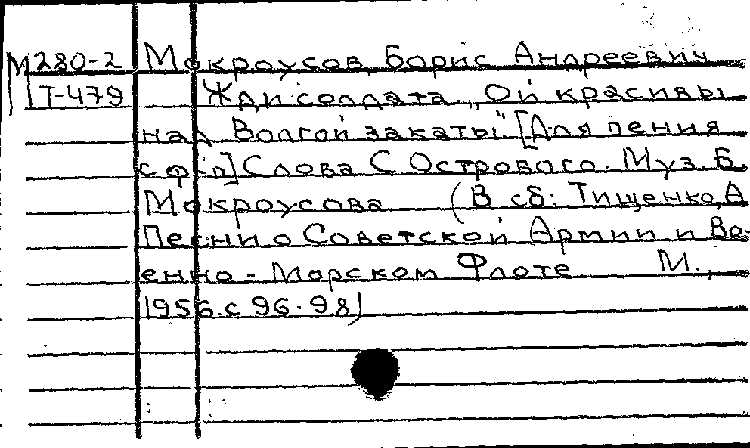 М 280-2 Мокроусов, Борис Андреевич
Т-479 Жди солдата. „Ой красивы
над Волгой закаты" [Для пения
с ф-п] Слова С Острового. Муз. Б.
Мокроусова (В сб: Тищенко, А
Песни о Советской Армии и Во-
енно-Морском Флоте М.,
1956. с 96-98)